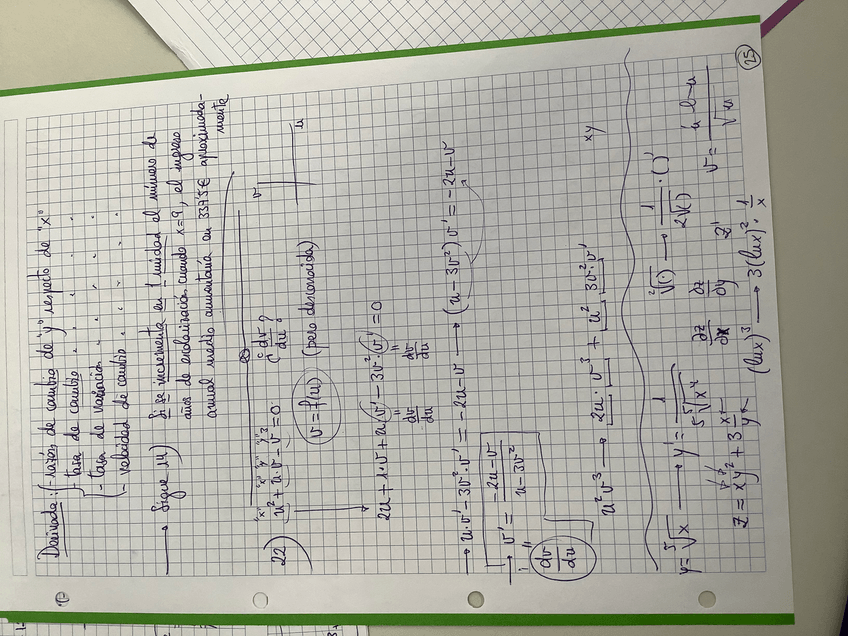 Derivada: - razón de cambio de "y" respecto de "x"
- tasa de cambio " " " " "
- tasa de variación " " " "
- velocidad de cambio " " " "
→ Sigue 14) Si se incrementa en 1 unidad el número de
años de escolarización cuando x=9, el ingreso
anual medio aumentaría en 3375€ aproximada-
mente
22) u² + u·v - v³ = 0 ¿dv/du?
"x" "x" "y" "y"³
v
u
v = f(u) (pero desconocida)
2u + 1·v + u·v' - 3v²·v' = 0
dv/du dv/du
→ u·v' - 3v²·v' = -2u-v → (u-3v²)·v' = -2u-v
→ v' = (-2u-v)/(u-3v²)
dv/du
u²v³ → 2u·v³ + u²·3v²·v'
xy
y = ⁵√x → y' = 1/(5⁵√x⁴) ²√(·) → 1/(2√()) · ()'
z = xy² + 3 x/y ∂z/∂x ∂z/∂y z'
v = /√u
(lnx)³ → 3(lnx)²·1/x
25